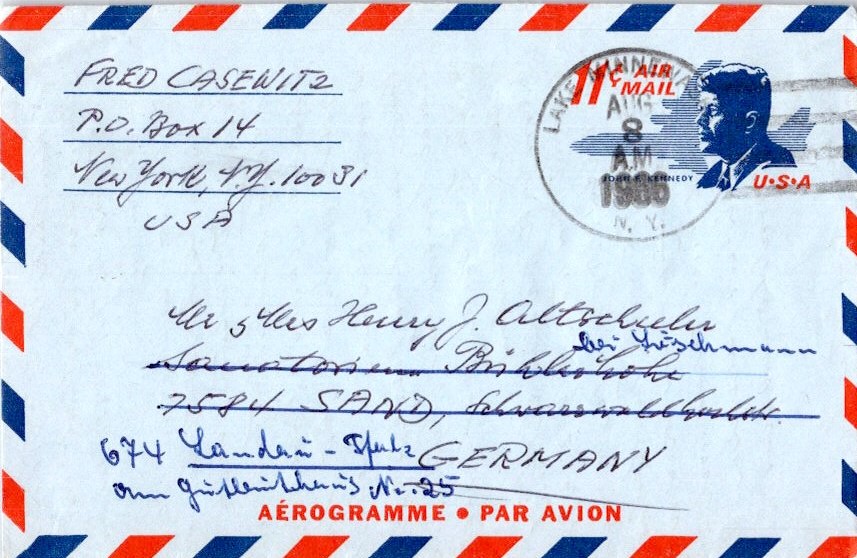 FRED CASEWITZ
P.O. Box 14
New York, N.Y. 10031
USA
LAKE MINNEWA
AUG
8
A.M
N. Y.
11¢ AIR
MAIL
JOHN F. KENNEDY
U•S•A
Mr & Mrs Henry J. Altschuler
bei
Sanatorium Bühlerhöhe
7584 SAND, Schwarzwaldhochstr.
674 Landau - Pfalz
GERMANY
am Gutleuthaus Nr. 25
AÉROGRAMME • PAR AVION